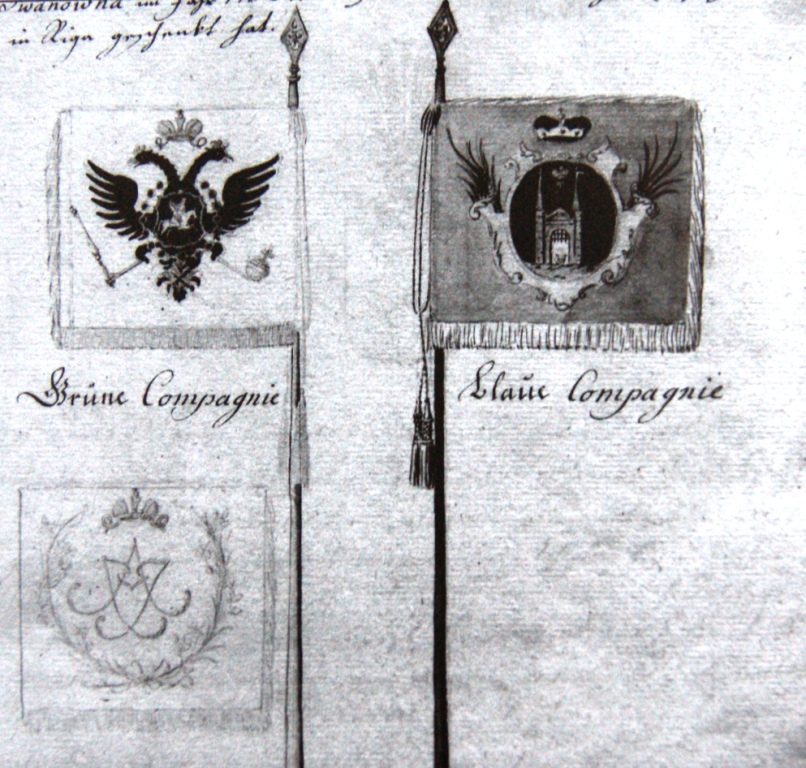 Iwanowna im Jahr
in Riga geschenkt hat.
Grüne Compagnie
blaue Compagnie